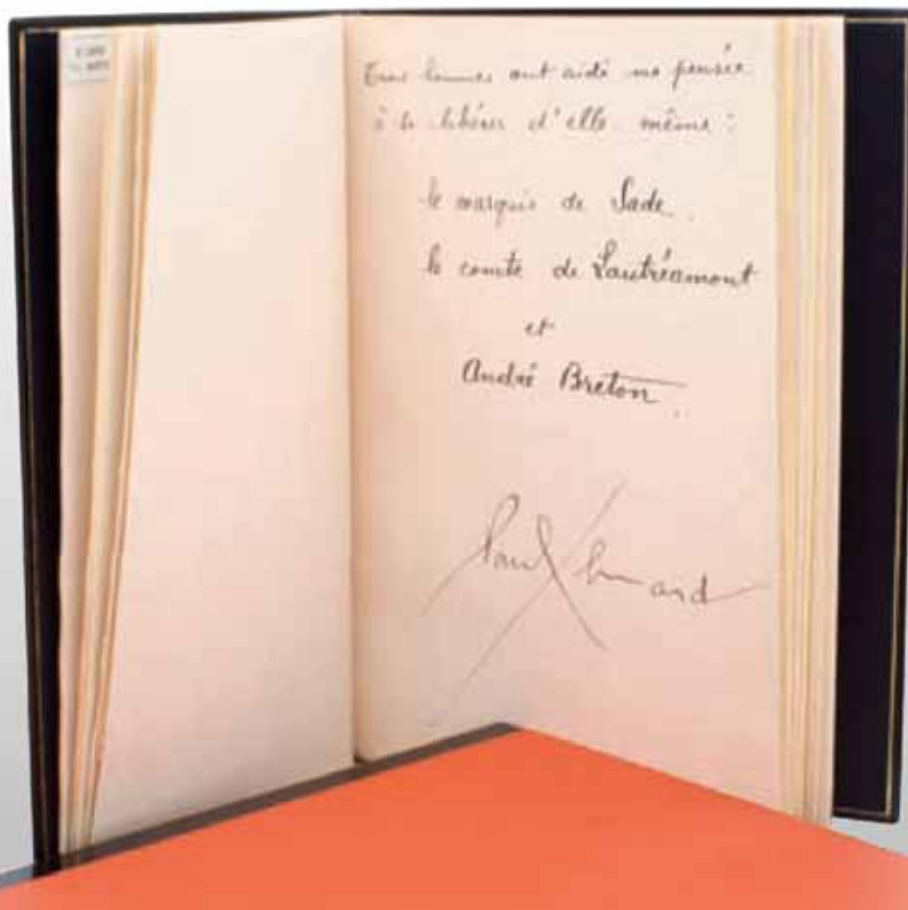 Trois hommes ont aidé ma pensée
à se libérer d'elle même :
le marquis de Sade
le comte de Lautréamont
et
André Breton
Paul Eluard